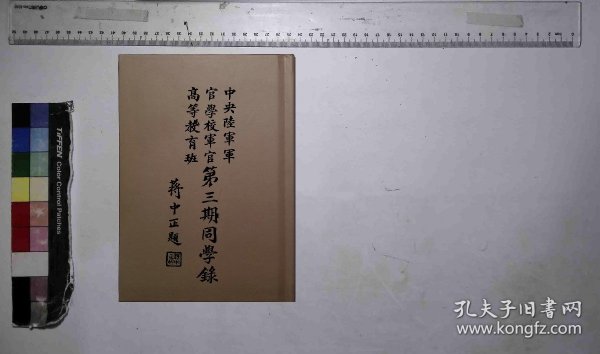 中央陸軍軍
官學校軍官
高等教育班
第三期同學錄
蔣中正題
TIFFEN Color Control Patches
孔夫子旧书网
www.kongfz.com